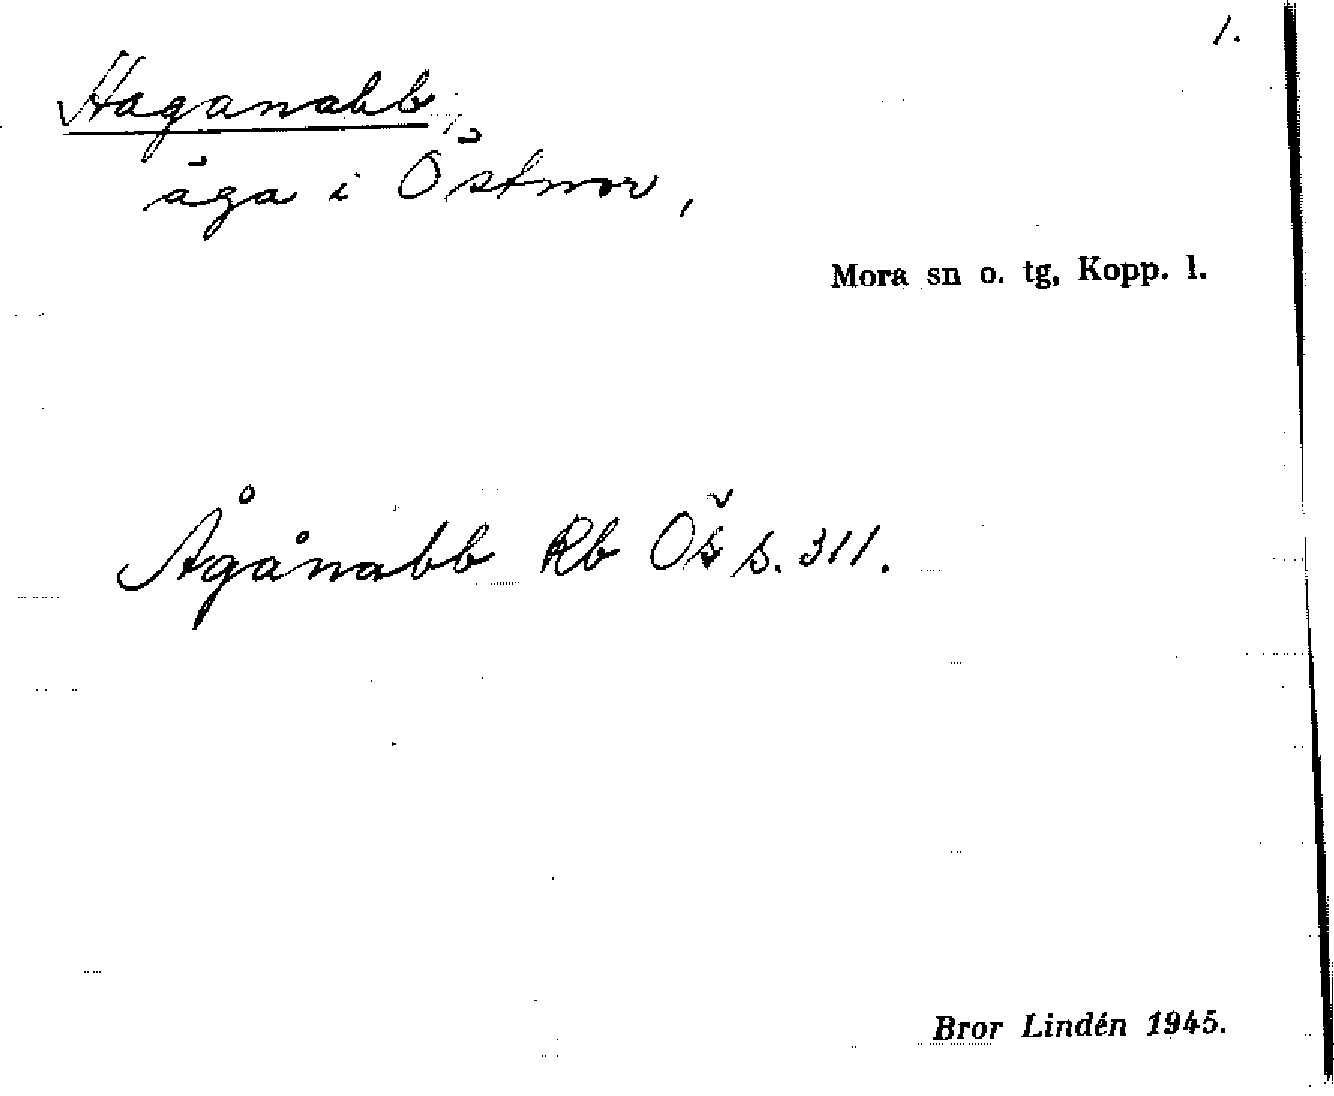 1.
Haganabb,
äga i Östnor,
Mora sn o. tg, Kopp. l.
Ågånabb Rb Öš s. 311.
Bror Lindén 1945.